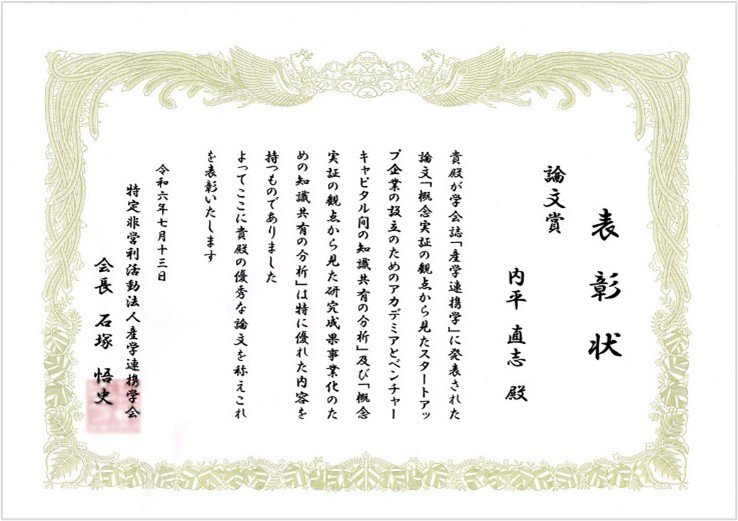 表彰状
論文賞
内平 直志 殿
貴殿が学会誌「産学連携学」に発表された
論文「概念実証の観点から見たスタートアッ
プ企業の設立のためのアカデミアとベンチャー
キャピタル間の知識共有の分析」及び「概念
実証の観点から見た研究成果事業化のた
めの知識共有の分析」は特に優れた内容を
持つものでありました
よってここに貴殿の優秀な論文を称えこれ
を表彰いたします
令和六年七月十三日
特定非営利活動法人産学連携学会
会長 石塚 悟史